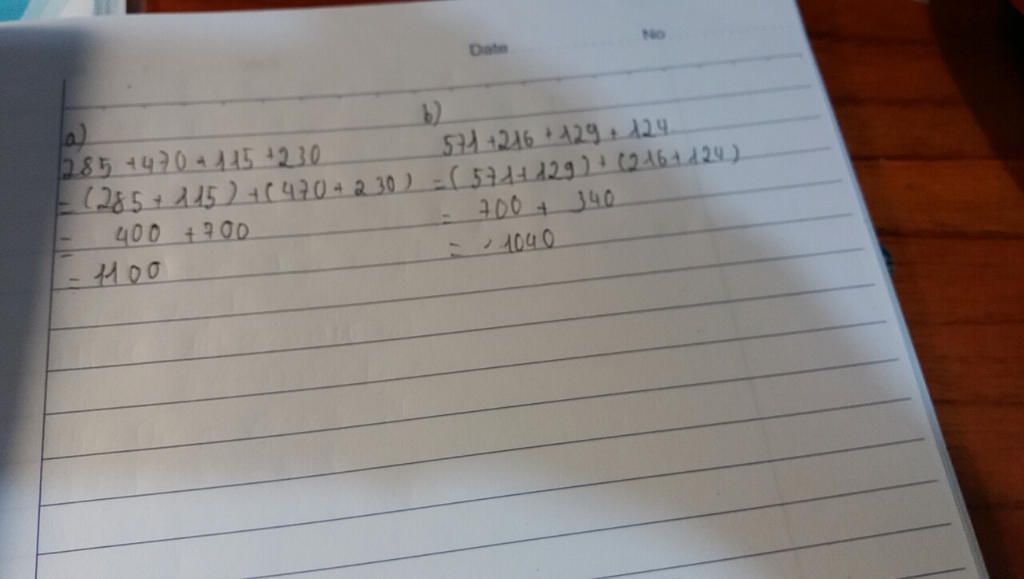 Date No
a)
285 + 470 + 115 + 230
= (285 + 115) + (470 + 230)
= 400 + 700
= 1100
b)
571 + 216 + 129 + 124
= (571 + 129) + (216 + 124)
= 700 + 340
= 1040